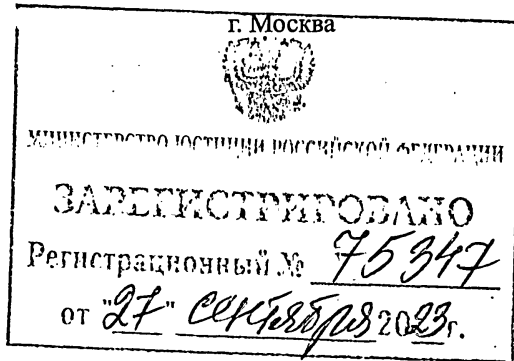 г. Москва
МИНИСТЕРСТВО ЮСТИЦИИ РОССИЙСКОЙ ФЕДЕРАЦИИ
ЗАРЕГИСТРИРОВАНО
Регистрационный № 75347
от "27" сентября 2023г.